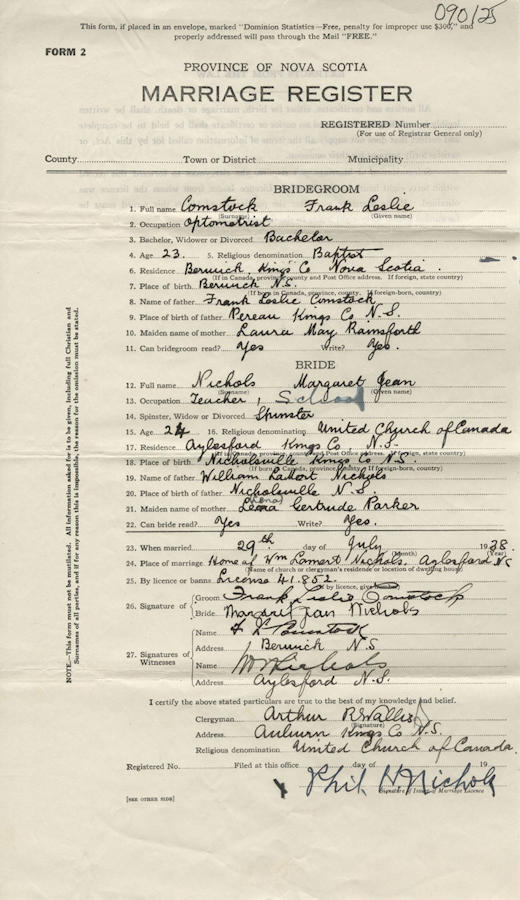 090125
This form, if placed in an envelope, marked "Dominion Statistics—Free, penalty for improper use $300," and
properly addressed will pass through the Mail "FREE."
FORM 2
PROVINCE OF NOVA SCOTIA
MARRIAGE REGISTER
REGISTERED Number
(For use of Registrar General only)
County Town or District Municipality
BRIDEGROOM
1. Full name Comstock Frank Leslie
(Surname) (Given name)
2. Occupation Optometrist
3. Bachelor, Widower or Divorced Bachelor
4. Age 23. 5. Religious denomination Baptist
6. Residence Berwick, Kings Co Nova Scotia.
(If in Canada, province, county and Post Office address. If foreign, state country)
7. Place of birth Berwick N.S.
(If born in Canada, province, county. If foreign-born, country)
8. Name of father Frank Leslie Comstock
9. Place of birth of father Pereau Kings Co N.S.
10. Maiden name of mother Laura May Rainsforth
11. Can bridegroom read? Yes Write? Yes.
BRIDE
12. Full name Nichols Margaret Jean
(Surname) (Given name)
13. Occupation Teacher, School
14. Spinster, Widow or Divorced Spinster
15. Age 24 16. Religious denomination United Church of Canada
17. Residence Aylesford Kings Co N.S.
(If in Canada, province, county and Post Office address. If foreign, state country)
18. Place of birth Nicholsville Kings Co N.S.
(If born in Canada, province, county. If foreign-born, country)
19. Name of father William Nichols
20. Place of birth of father Nicholsville N.S.
21. Maiden name of mother Gertrude Parker
22. Can bride read? Yes Write? Yes.
23. When married 29th day of July 1938
(Month) (Year)
24. Place of marriage Home of Wm Lamert Nichols, Aylesford NS
(Name of church or clergyman's residence or location of dwelling house)
25. By licence or banns License 41.852.
(If by licence, give number)
26. Signature of Groom Frank Leslie Comstock
Bride Margaret Jean Nichols
27. Signatures of Witnesses Name F L Comstock
Address Berwick N.S
Name W Nichols
Address Aylesford N.S.
I certify the above stated particulars are true to the best of my knowledge and belief.
Clergyman Arthur R Wallis
(Signature)
Address Auburn Kings Co N.S.
Religious denomination United Church of Canada.
Registered No. Filed at this office day of 19
Phil H. Nichols
Signature of Issuer of Marriage Licence
[SEE OTHER SIDE]
NOTE—This form must not be mutilated. All information asked for is to be given, including full Christian and
Surnames of all parties, and if for any reason this is impossible, the reason for the omission must be stated.